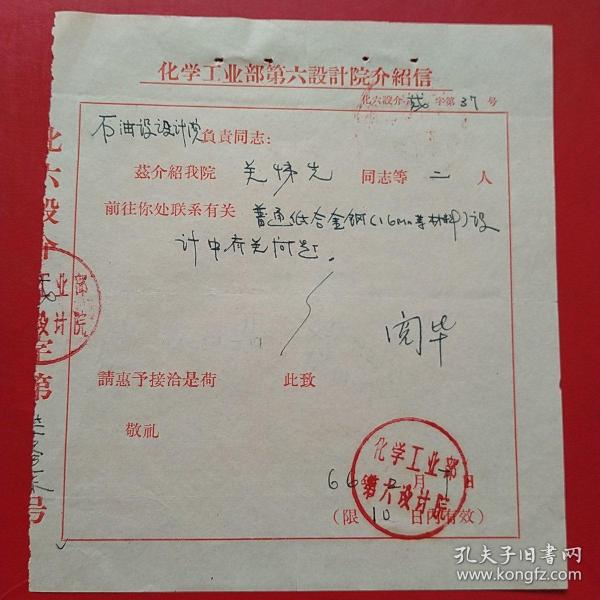 化学工业部第六設計院介紹信
化六設介 字第 37 号
石油设设计院負責同志：
茲介紹我院 关悌先 同志等 二 人
前往你处联系有关 普通低合金钢(16Mn等材料)设
计中有关问题.
阅毕
請惠予接洽是荷 此致
敬礼
66年 月 日
(限 10 日內有效)
化学工业部
第六设计院
化六設介
字第
号
工业部
设计院
孔夫子旧书网
www.kongfz.com